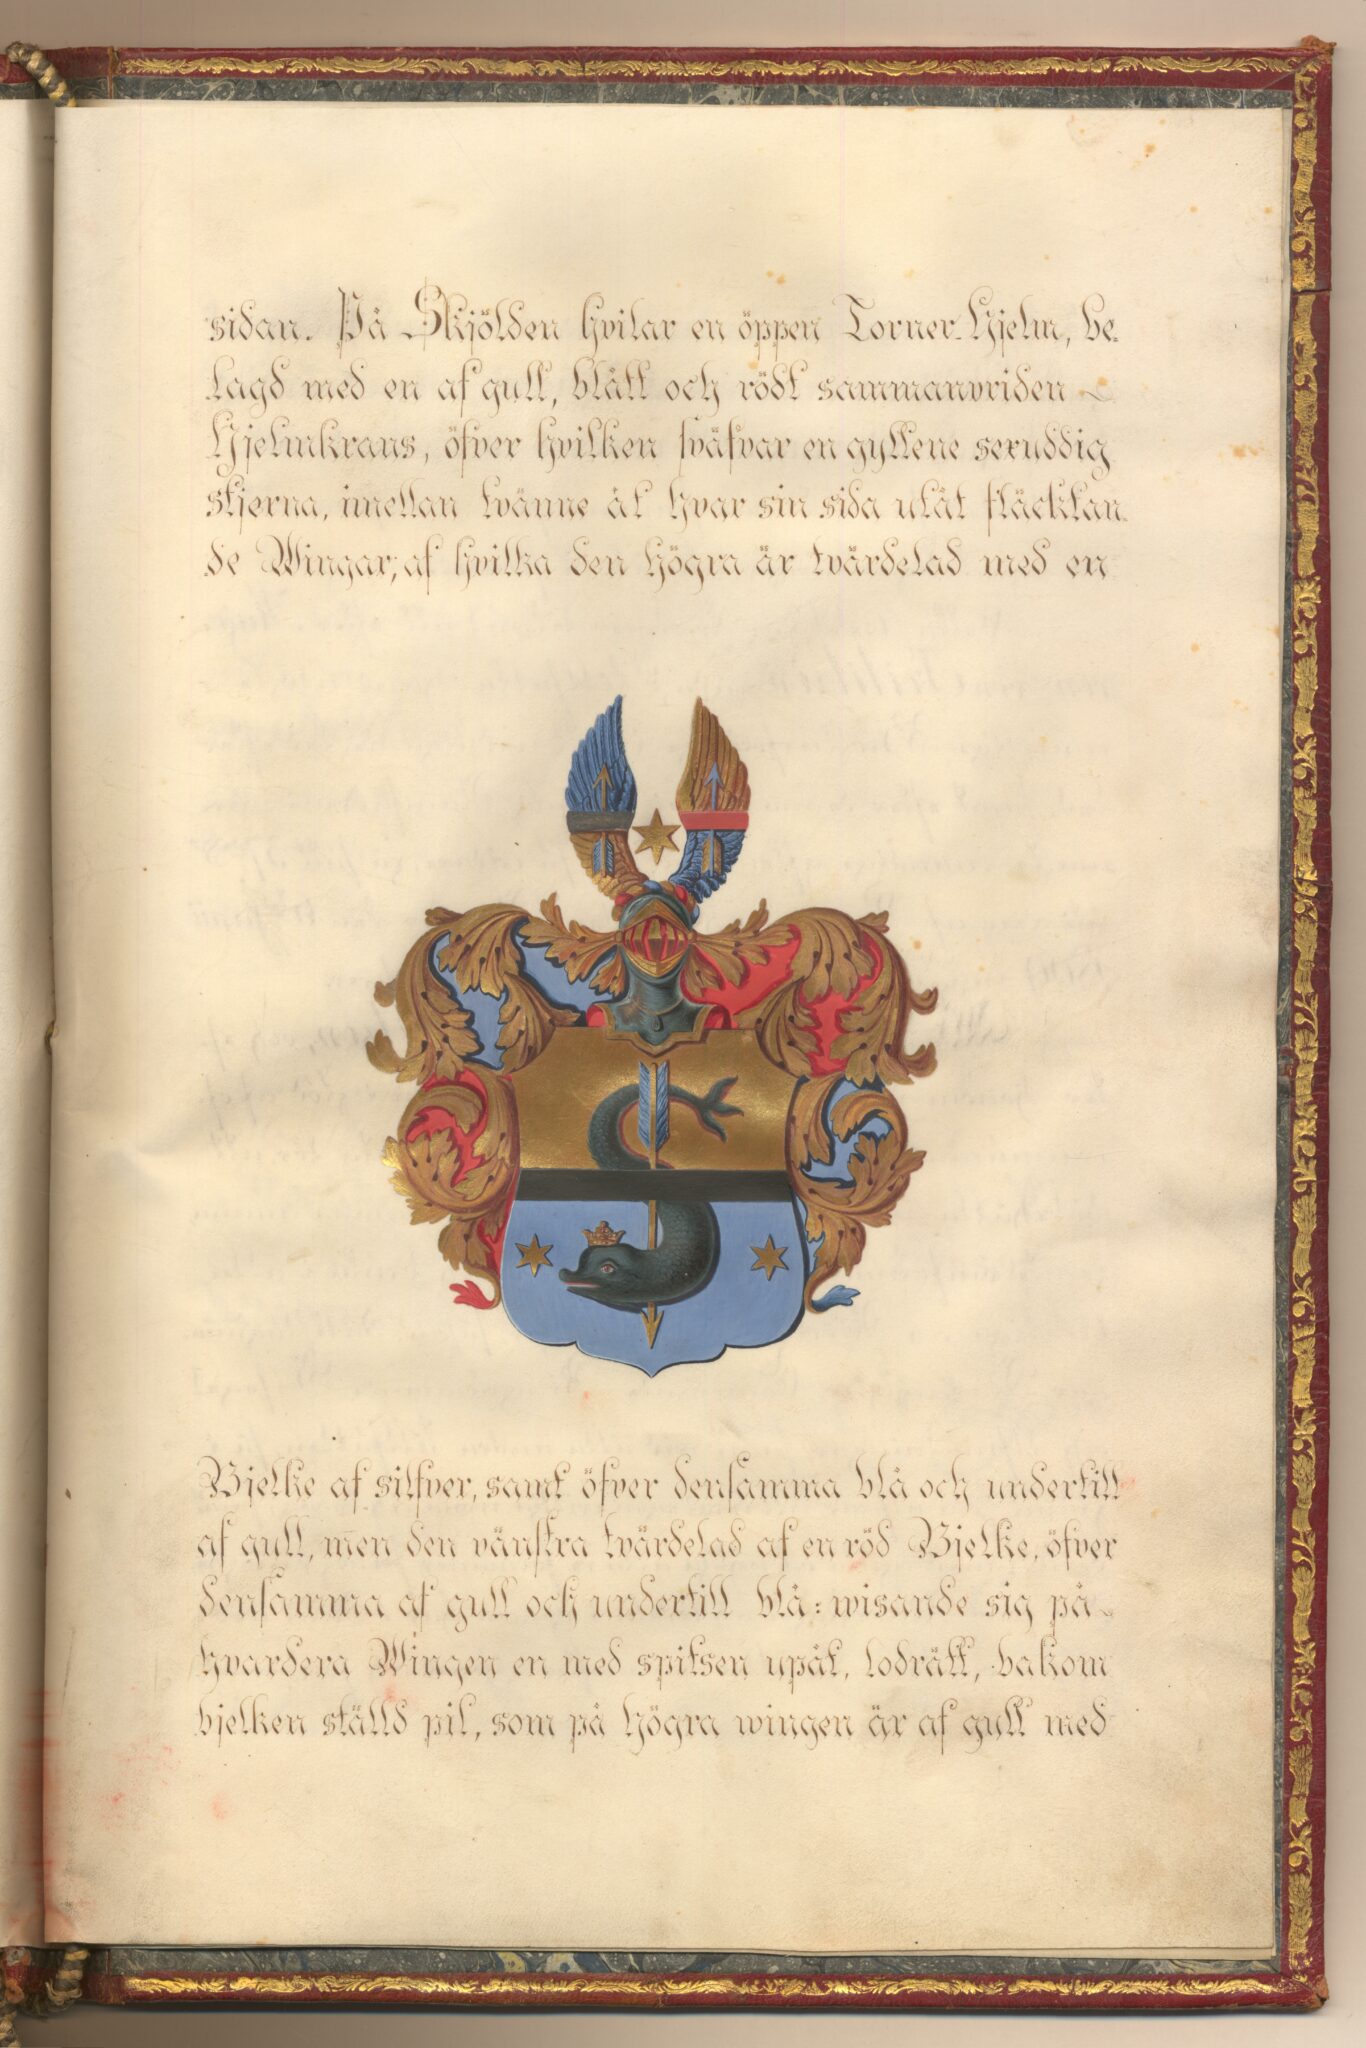 sidan. På Skjölden hvilar en öppen Torner-Hjelm, be-
lagd med en af gull, blått och rödt sammanvriden
Hjelmkrans, öfver hvilken sväfvar en gyllene sexuddig
stjerna, imellan tvänne åt hvar sin sida utåt fläcktan-
de Wingar, af hvilka den högra är tvärdelad med en
Bjelke af silfver, samt öfver densamma blå och undertill
af gull, men den vänstra tvärdelad af en röd Bjelke, öfver
densamma af gull och undertill blå: wisande sig på
hvardera Wingen en med spitsen upåt, lodrätt, bakom
bjelken ställd pil, som på högra wingen är af gull med